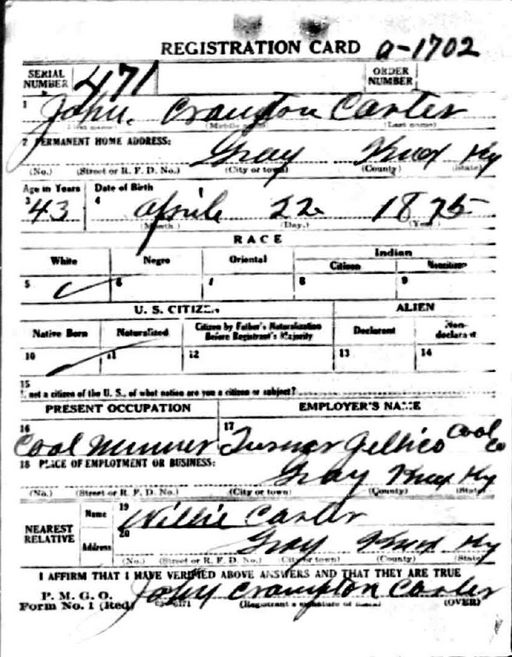 REGISTRATION CARD a-1702
SERIAL NUMBER 471 ORDER NUMBER
1 John. Crampton Carter
(First name) (Middle name) (Last name)
2 PERMANENT HOME ADDRESS:
Gray Knox Ky
(No.) (Street or R. F. D. No.) (City or town) (County) (State)
Age in Years Date of Birth
3 43 4 April 22 1875
(Month.) (Day.) (Year.)
RACE
White Negro Oriental Indian
Citizen Noncitizen
5 6 7 8 9
U. S. CITIZEN ALIEN
Native Born Naturalized Citizen by Father's Naturalization Before Registrant's Majority Declarant Non-declarant
10 11 12 13 14
15
If not a citizen of the U. S., of what nation are you a citizen or subject?
PRESENT OCCUPATION EMPLOYER'S NAME
16 17
Coal Minner Turner Jellico Coal Co
18 PLACE OF EMPLOYMENT OR BUSINESS:
Gray Knox Ky
(No.) (Street or R. F. D. No.) (City or town) (County) (State)
NEAREST RELATIVE Name 19 Willie Carter
Address 20 Gray Knox Ky
(No.) (Street or R. F. D. No.) (City or town) (County) (State)
I AFFIRM THAT I HAVE VERIFIED ABOVE ANSWERS AND THAT THEY ARE TRUE
P. M. G. O.
Form No. 1 (Red) John Crampton Carter
(Registrant's signature or mark) (OVER)